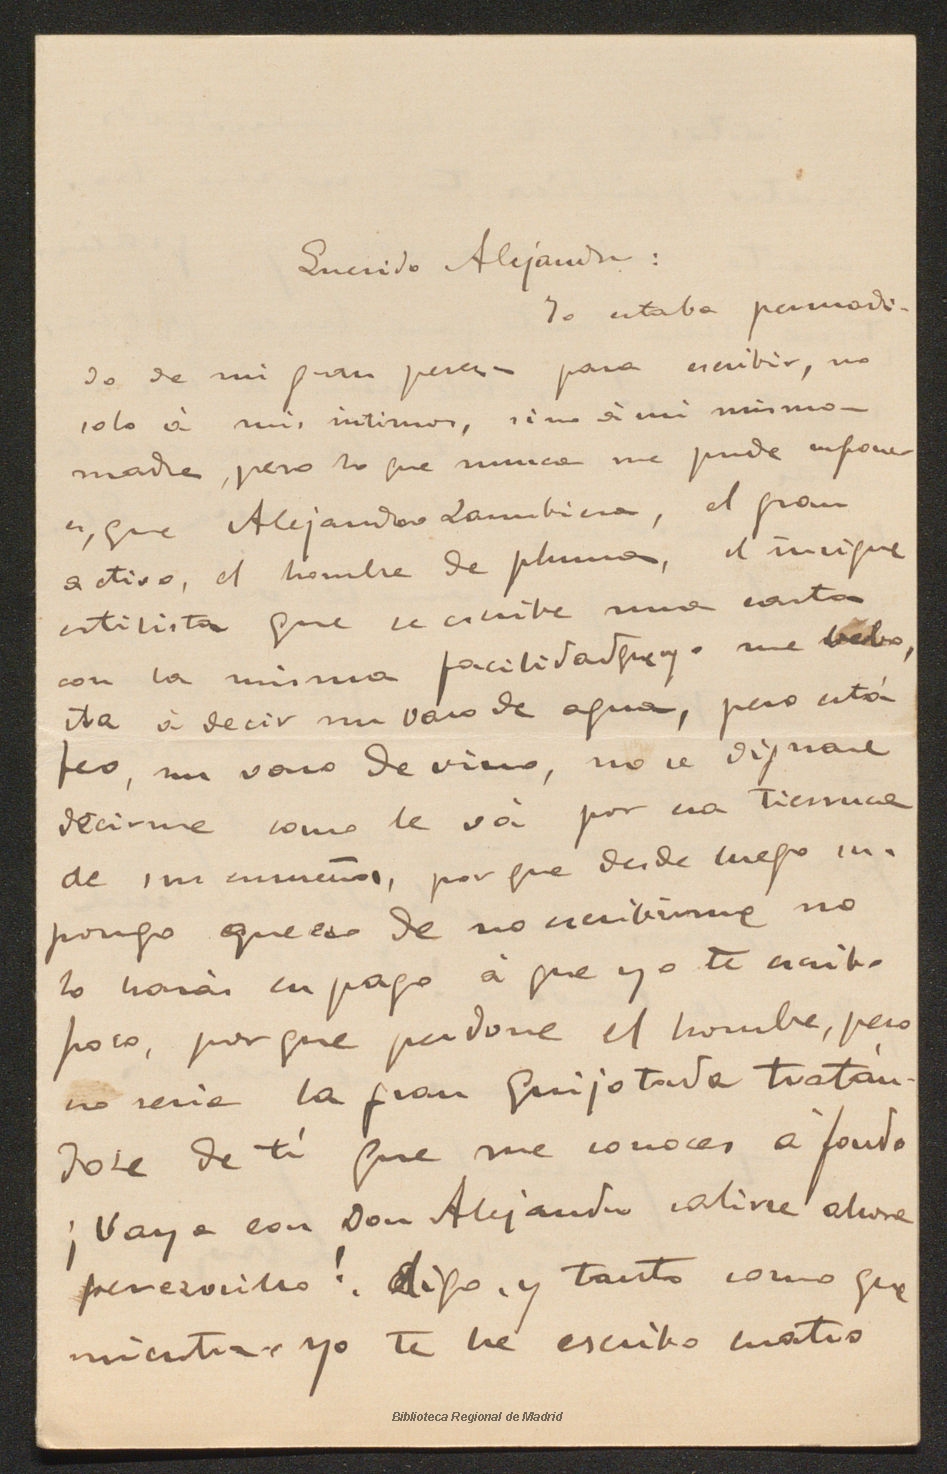 Querido Alejandro:
Yo estaba persuadi-
do de mi gran pereza para escribir, no
solo á mis intimos, sino á mi misma
madre, pero lo que nunca me pude suponer
es, que Alejandro Larrubiera, el gran
activo, el hombre de pluma, el insigne
estilista que se escribe una carta
con la misma facilidad que yo me bebo,
iba á decir un vaso de agua, pero está
feo, un vaso de vino, no se dignase
decirme como le vá por esa tierruca
de sus ensueños, porque desde luego su-
pongo que eso de no escribirme no
lo harás en pago á que yo te escriba
poco, porque perdone el hombre, pero
no seria la gran quijotada tratán-
dose de tí que me conoces á fondo
¡Vaya con Don Alejandro salirse ahora
perezosillo!. Digo, y tanto como que
mientras yo te he escrito cuatro
Biblioteca Regional de Madrid